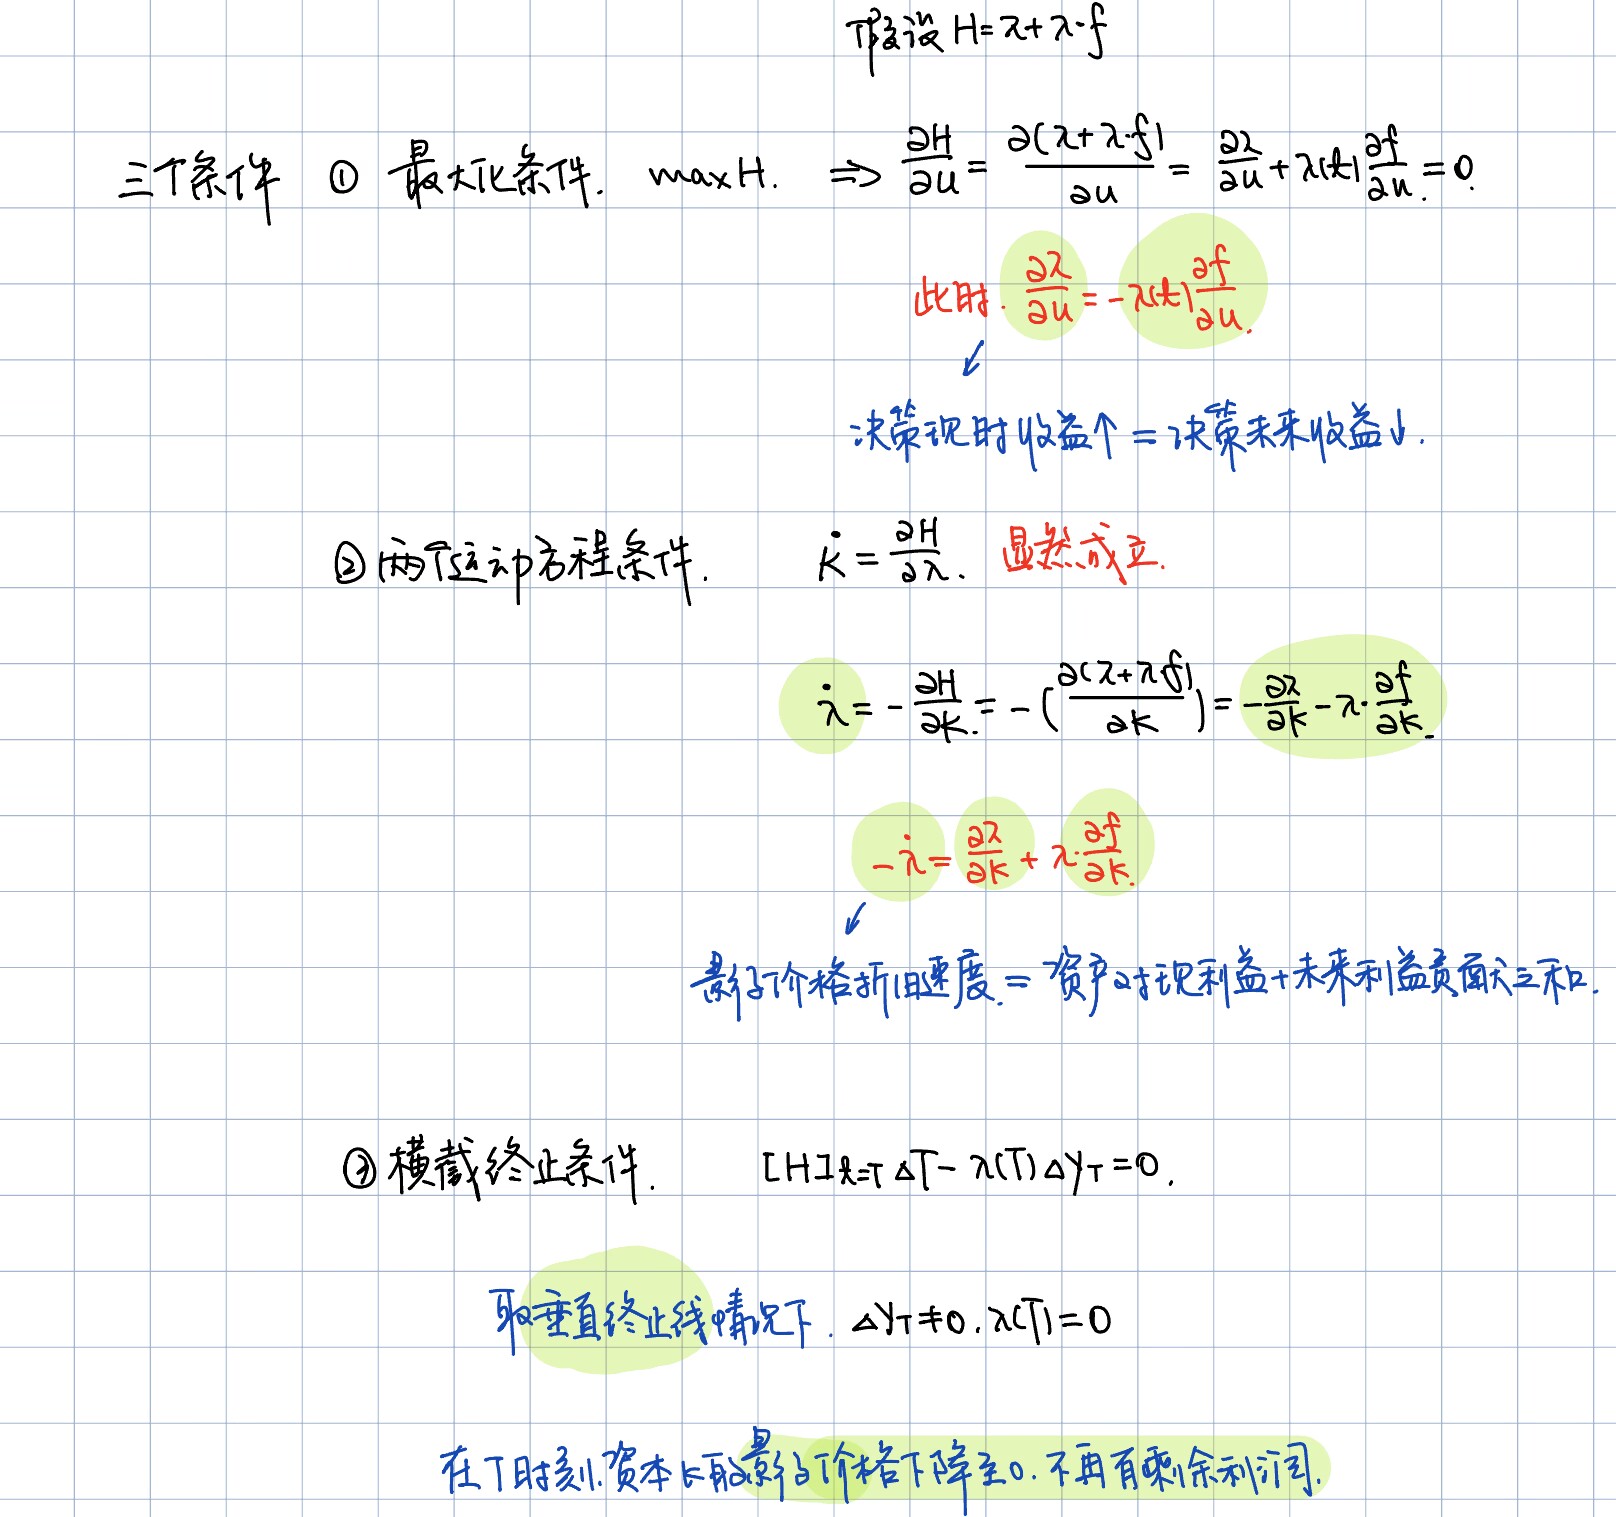 假设 H=π+λ·f
三个条件 ① 最大化条件. max H. ⇒ ∂H/∂u = ∂(π+λ·f)/∂u = ∂π/∂u + λ(t) ∂f/∂u = 0.
此时. ∂π/∂u = -λ(t) ∂f/∂u.
↙
决策现时收益↑ = 决策未来收益↓.
② 两个运动方程条件. k̇ = ∂H/∂λ. 显然成立.
λ̇ = -∂H/∂k. = -(∂(π+λ·f)/∂k) = -∂π/∂k - λ·∂f/∂k.
-λ̇ = ∂π/∂k + λ·∂f/∂k.
↙
影子价格折旧速度. = 资产对现利益+未来利益贡献之和.
③ 横截终止条件. [H]t=T ΔT - λ(T) ΔyT = 0.
取垂直终止线情况下. ΔyT≠0. λ(T)=0
在T时刻.资本k的影子价格下降至0.不再有剩余利润.